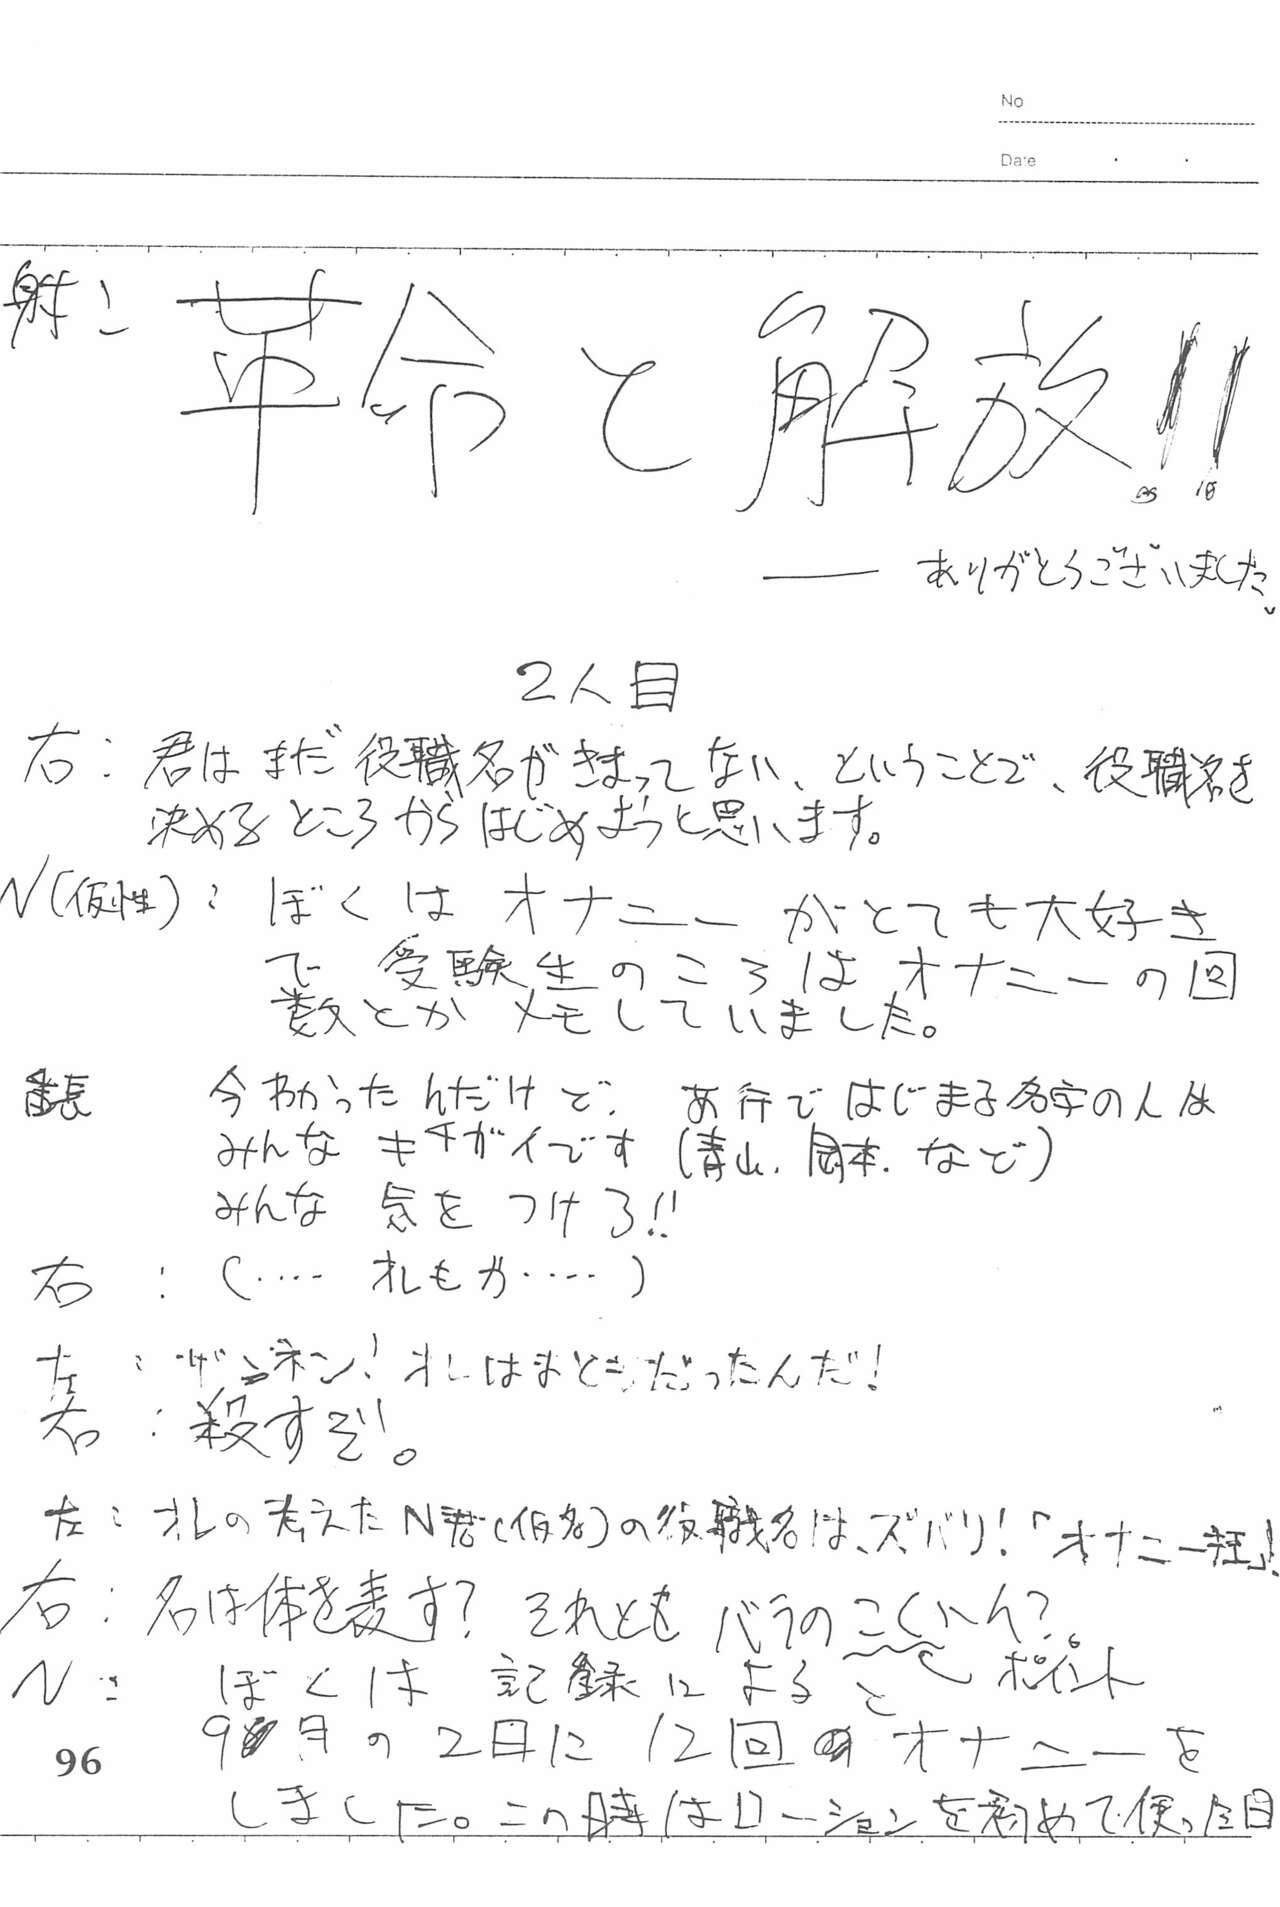 No
Date
射: 革命と解放!!
── ありがとうございました。
2人目
右: 君はまだ役職名がきまってない、ということで、役職名を
決めるところからはじめようと思います。
N(仮性): ぼくはオナニーがとても大好き
で 受験生のころはオナニーの回
数とかメモしていました。
番長 今わかったんだけど、あ行ではじまる名字の人は
みんなキチガイです (青山、岡本、など)
みんな 気をつけろ!!
右: (‥‥‥ オレもか‥‥‥)
左: ザンネン! オレはまともだったんだ!
右: 殺すぞ!。
左: オレの考えたN君(仮名)の役職名は、ズバリ!「オナニー狂」!
右: 名は体を表す? それともバラのこくいへん?
ポイント
N: ぼくは 記録によると
9月の2日に12回オナニーを
しました。この時はローションを初めて使った日
96